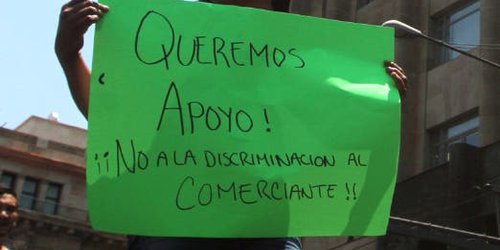 QUEREMOS
APOYO!
¡¡NO A LA DISCRIMINACION AL
COMERCIANTE!!